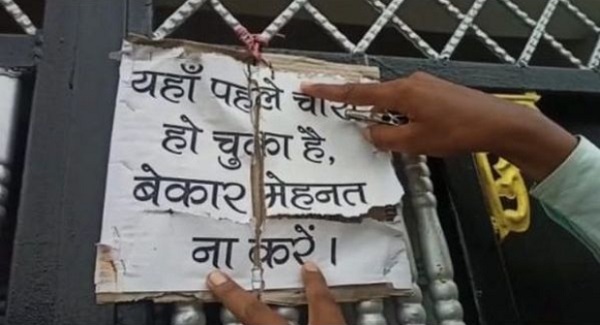 यहाँ पहले चोरी
हो चुका है,
बेकार मेहनत
ना करें।